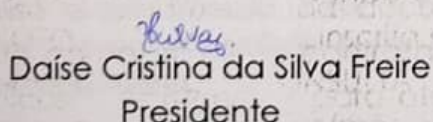 Daíse Cristina da Silva Freire
Presidente